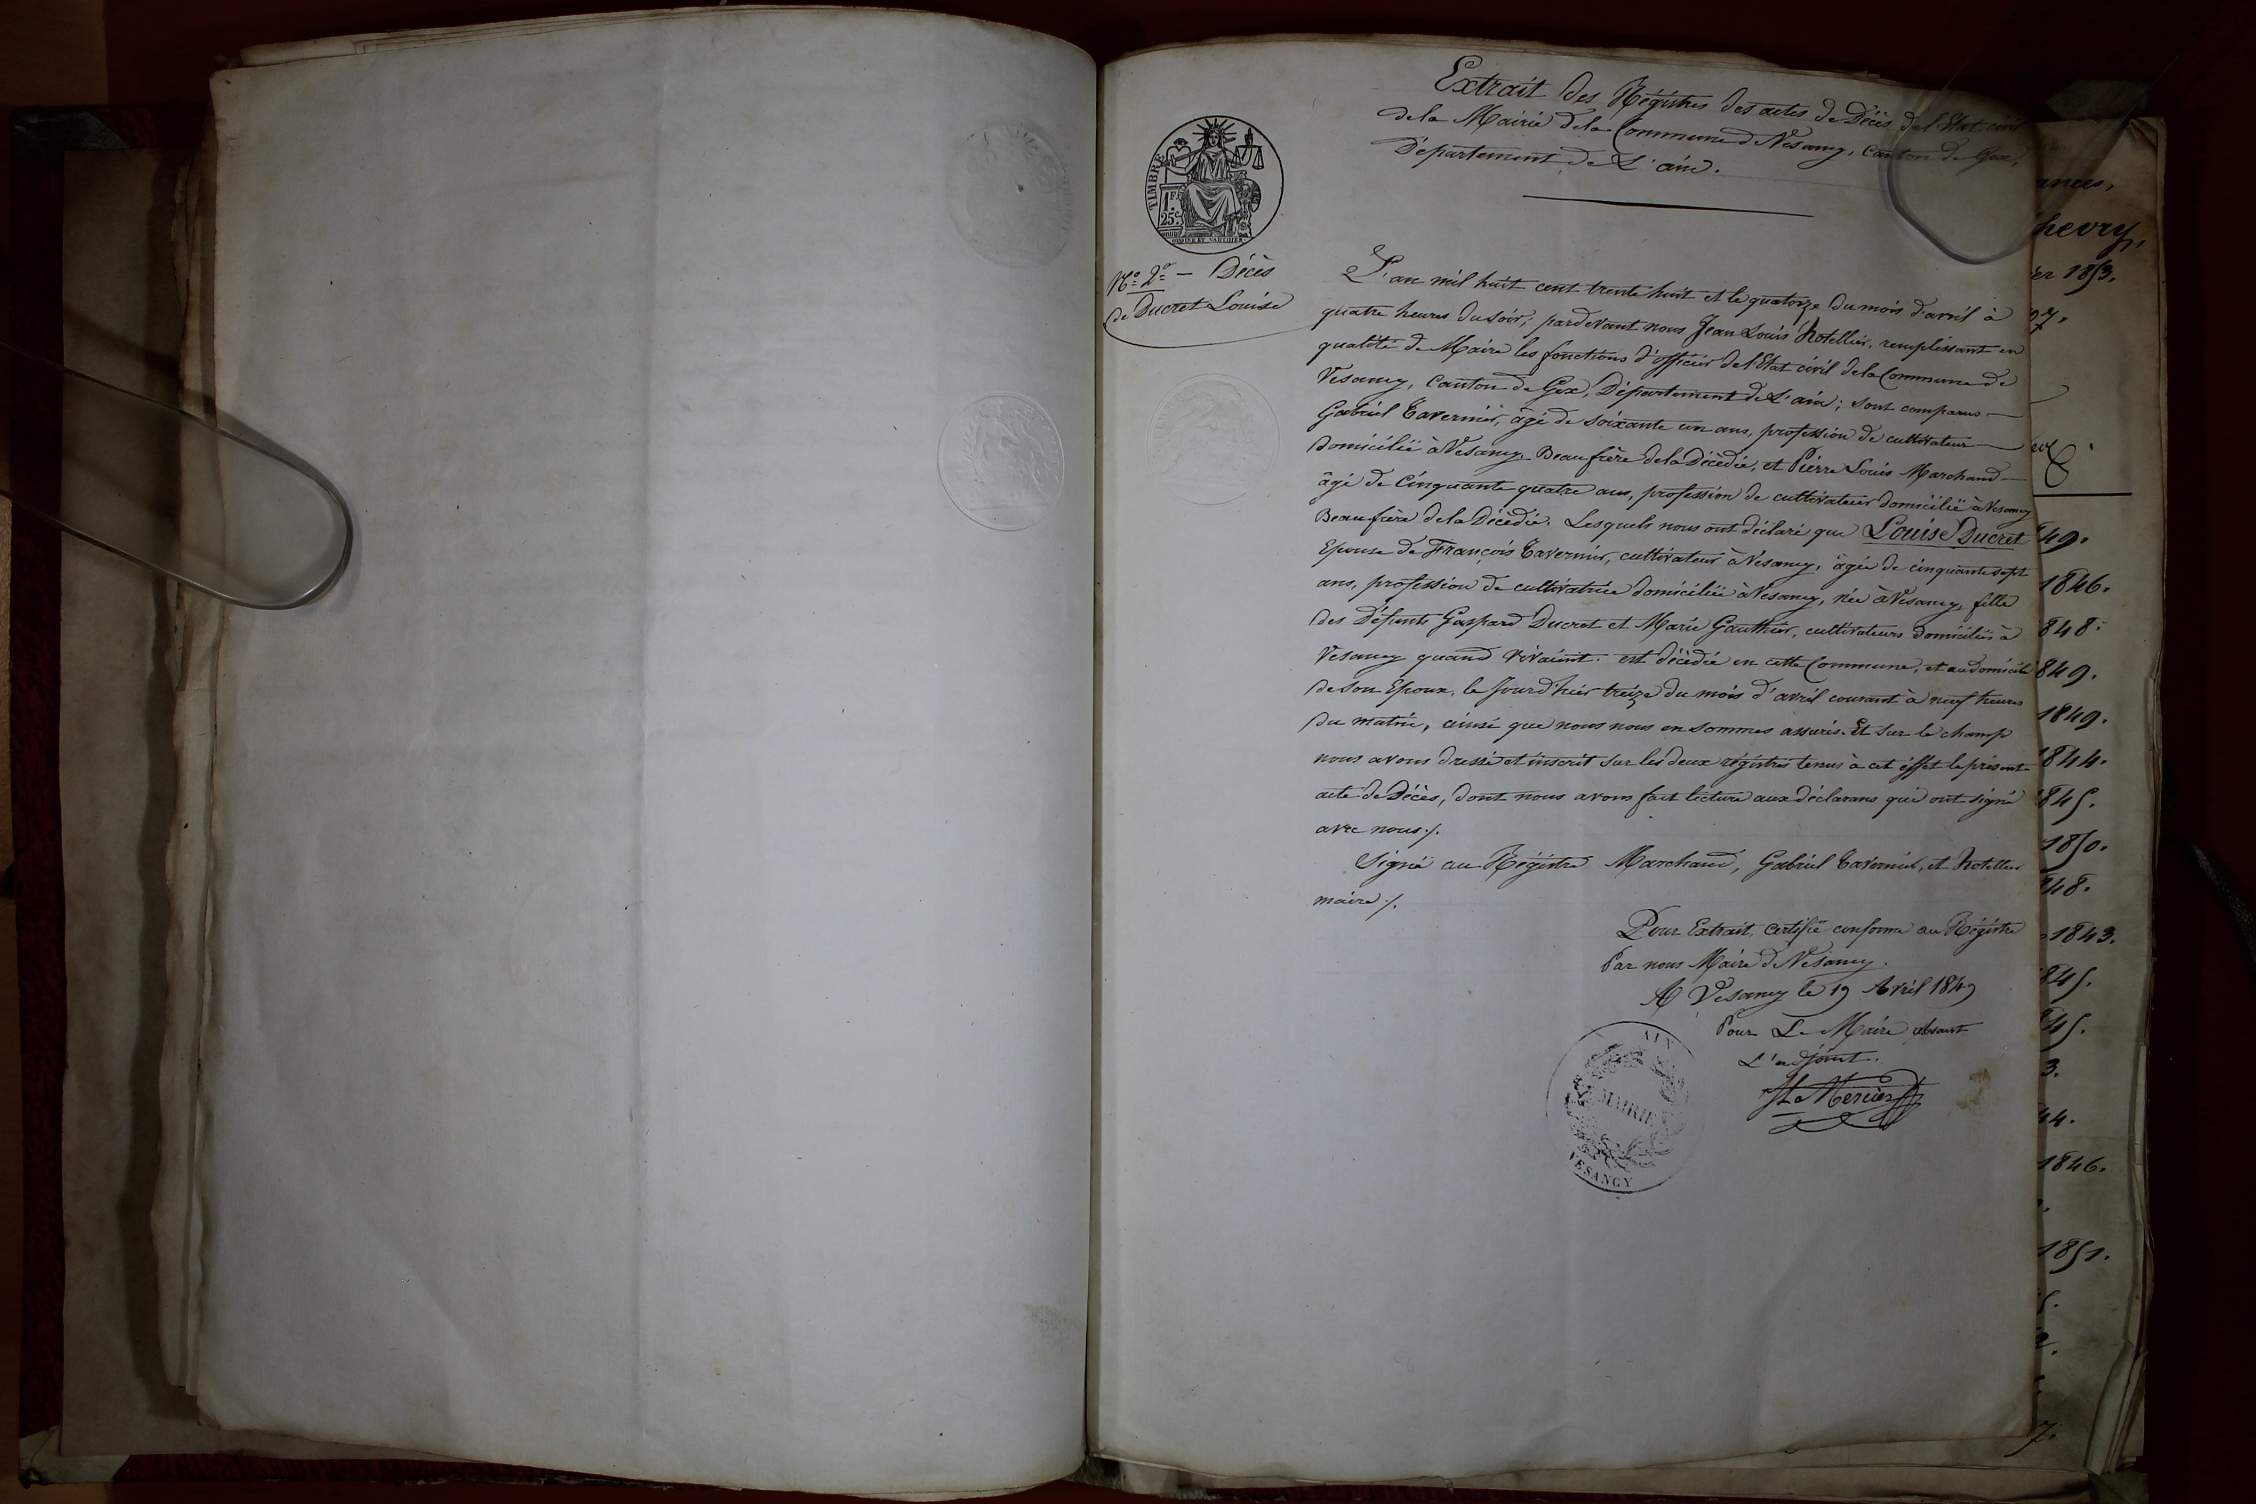 Extrait des Régistres des actes de Décès de l'Etat civil
de la Mairie de la Commune d Vesancy, canton de Gex,
Département de L'ain.
TIMBRE
1 Fr
25 c
No. 2o. — Décès
de Ducret Louise
L'an mil huit cent trente huit et le quatorze du mois d'avril à
quatre heures du soir; pardevant nous Jean Louis hotellier, remplissant en
qualité de Maire les fonctions d'officier de l'Etat civil de la Commune de
Vesancy, Canton de Gex, Département de L'ain; sont comparus —
Gabriel Tavernier, âgé de soixante un ans, profession de cultivateur —
domicilié à Vesancy Beaufrère de la Décèdée, et Pierre Louis Marchand —
âgé de Cinquante quatre ans, profession de cultivateur domicilié à Vesancy
Beaufrère de la Décèdée. Lesquels nous ont déclaré que Louise Ducret
Epouse de François Tavernier, cultivateur à Vesancy, âgée de cinquante sept
ans, profession de cultivatrice domiciliée à Vesancy, née à Vesancy, fille
des Défunts Gaspard Ducret et Marie Gauthier, cultivateurs domiciliés à
Vesancy quand vivaient. est décèdée en cette Commune, et au domicile
de son Epoux, le jourd'hier treize du mois d'avril courant à neuf heures
du matin, ainsi que nous nous en sommes assurés. Et sur le champ
nous avons dressé et inscrit sur les deux régistres tenus à cet éffet le présent
acte de Décès, dont nous avons fait lecture aux déclarans qui ont signé
avec nous ./.
Signé au Régistre Marchand, Gabriel Tavernier, et hotellier
maire ./.
Pour Extrait, certifié conforme au Régistre
Par nous Maire de Vesancy.
A Vesancy le 19 Avril 1849
Pour Le Maire absent
L'adjoint.
JL Mercier
AIN
MAIRIE
VESANCY
hevry,
er 1853.
49.
1846.
848.
849.
1849.
1844.
845.
1850.
48.
1843.
845.
45.
3.
44.
1846.
1851.
7.